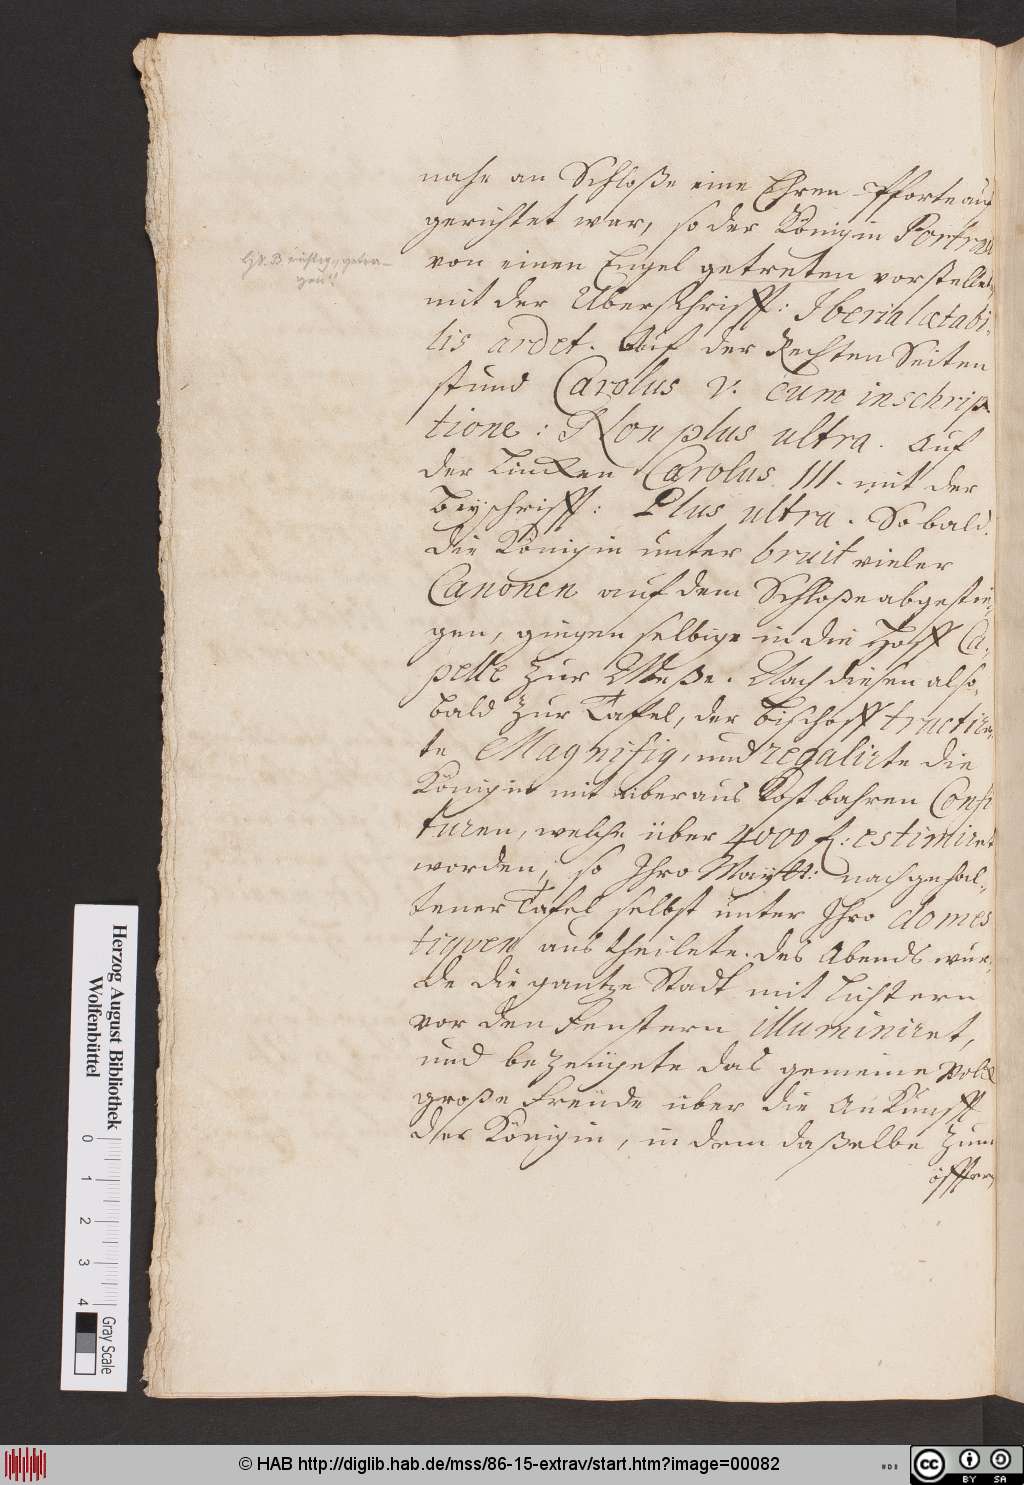 nahe an Schloße eine Ehren-Pforte auf
gerichtet war, so der Königin Portrait
von einen Engel getreten vorstellet,
mit der Überschrifft: Iberia lætabi-
lis ardet. Auf der Rechten Seiten
stund Carolus V. cum inschrip
tione: Non plus ultra. Auf
der Lincken Carolus III. mit der
Beyschrifft: Plus ultra. So bald
die Königin unter bruit vieler
Canonen auf dem Schloße abgestie-
gen, gingen selbige in die Hoff Ca-
pelle zur Meße. Nach diesen also-
bald zur Tafel, der Bischoff tractir-
te Magnifiq, und regalirte die
Königin mit überaus kostbahren Confi
turen, welche über 4000 f: estimiret
worden, so Ihro Maytt: nach gehal-
tener Tafel selbst unter Ihro domes
tiquen aus theilete. Des Abends wur-
de die gantze Stadt mit Lichtern
vor den Fenstern illuminiret,
und bezeügete das gemeine Volck
große Freüde über die Ankunfft
der Königin, in dem daßelbe zum
öffter,
Hs. B richtig „getra-
gen“!
Herzog August Bibliothek
Wolfenbüttel
0 1 2 3 4
Gray Scale
© HAB http://diglib.hab.de/mss/86-15-extrav/start.htm?image=00082
cc BY SA